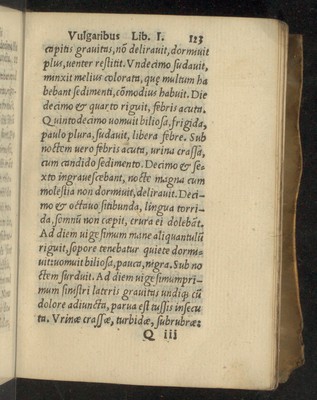 Vulgaribus Lib. I. 123
capitis grauitas, nō delirauit, dormiuit
plus, uenter restitit. Vndecimo sudauit,
minxit melius colorata, quę multum ha
bebant sedimenti, cōmodius habuit. Die
decimo & quarto riguit, febris acuta.
Quintodecimo uomuit biliosa, frigida,
paulo plura, sudauit, libera febre. Sub
noctem uero febris acuta, urina crassa,
cum candido sedimento. Decimo & se-
xto ingrauescebant, nocte magna cum
molestia non dormiuit, delirauit. Deci-
mo & octauo sitibunda, lingua torri-
da, somnū non cœpit, crura ei dolebāt.
Ad diem uigesimum mane aliquantulū
riguit, sopore tenebatur quiete dormi-
uit: uomuit biliosa, pauca, nigra. Sub no
ctem surduit. Ad diem uigesimumpri-
mum sinistri lateris grauitas undiq; cū
dolore adiuncta, parua est tussis insecu
ta. Vrinæ crassæ, turbidæ, subrubræ:
Q iii